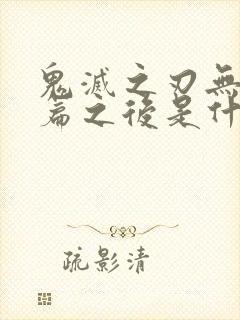 鬼滅之刃無
篇之後是什
疏影清